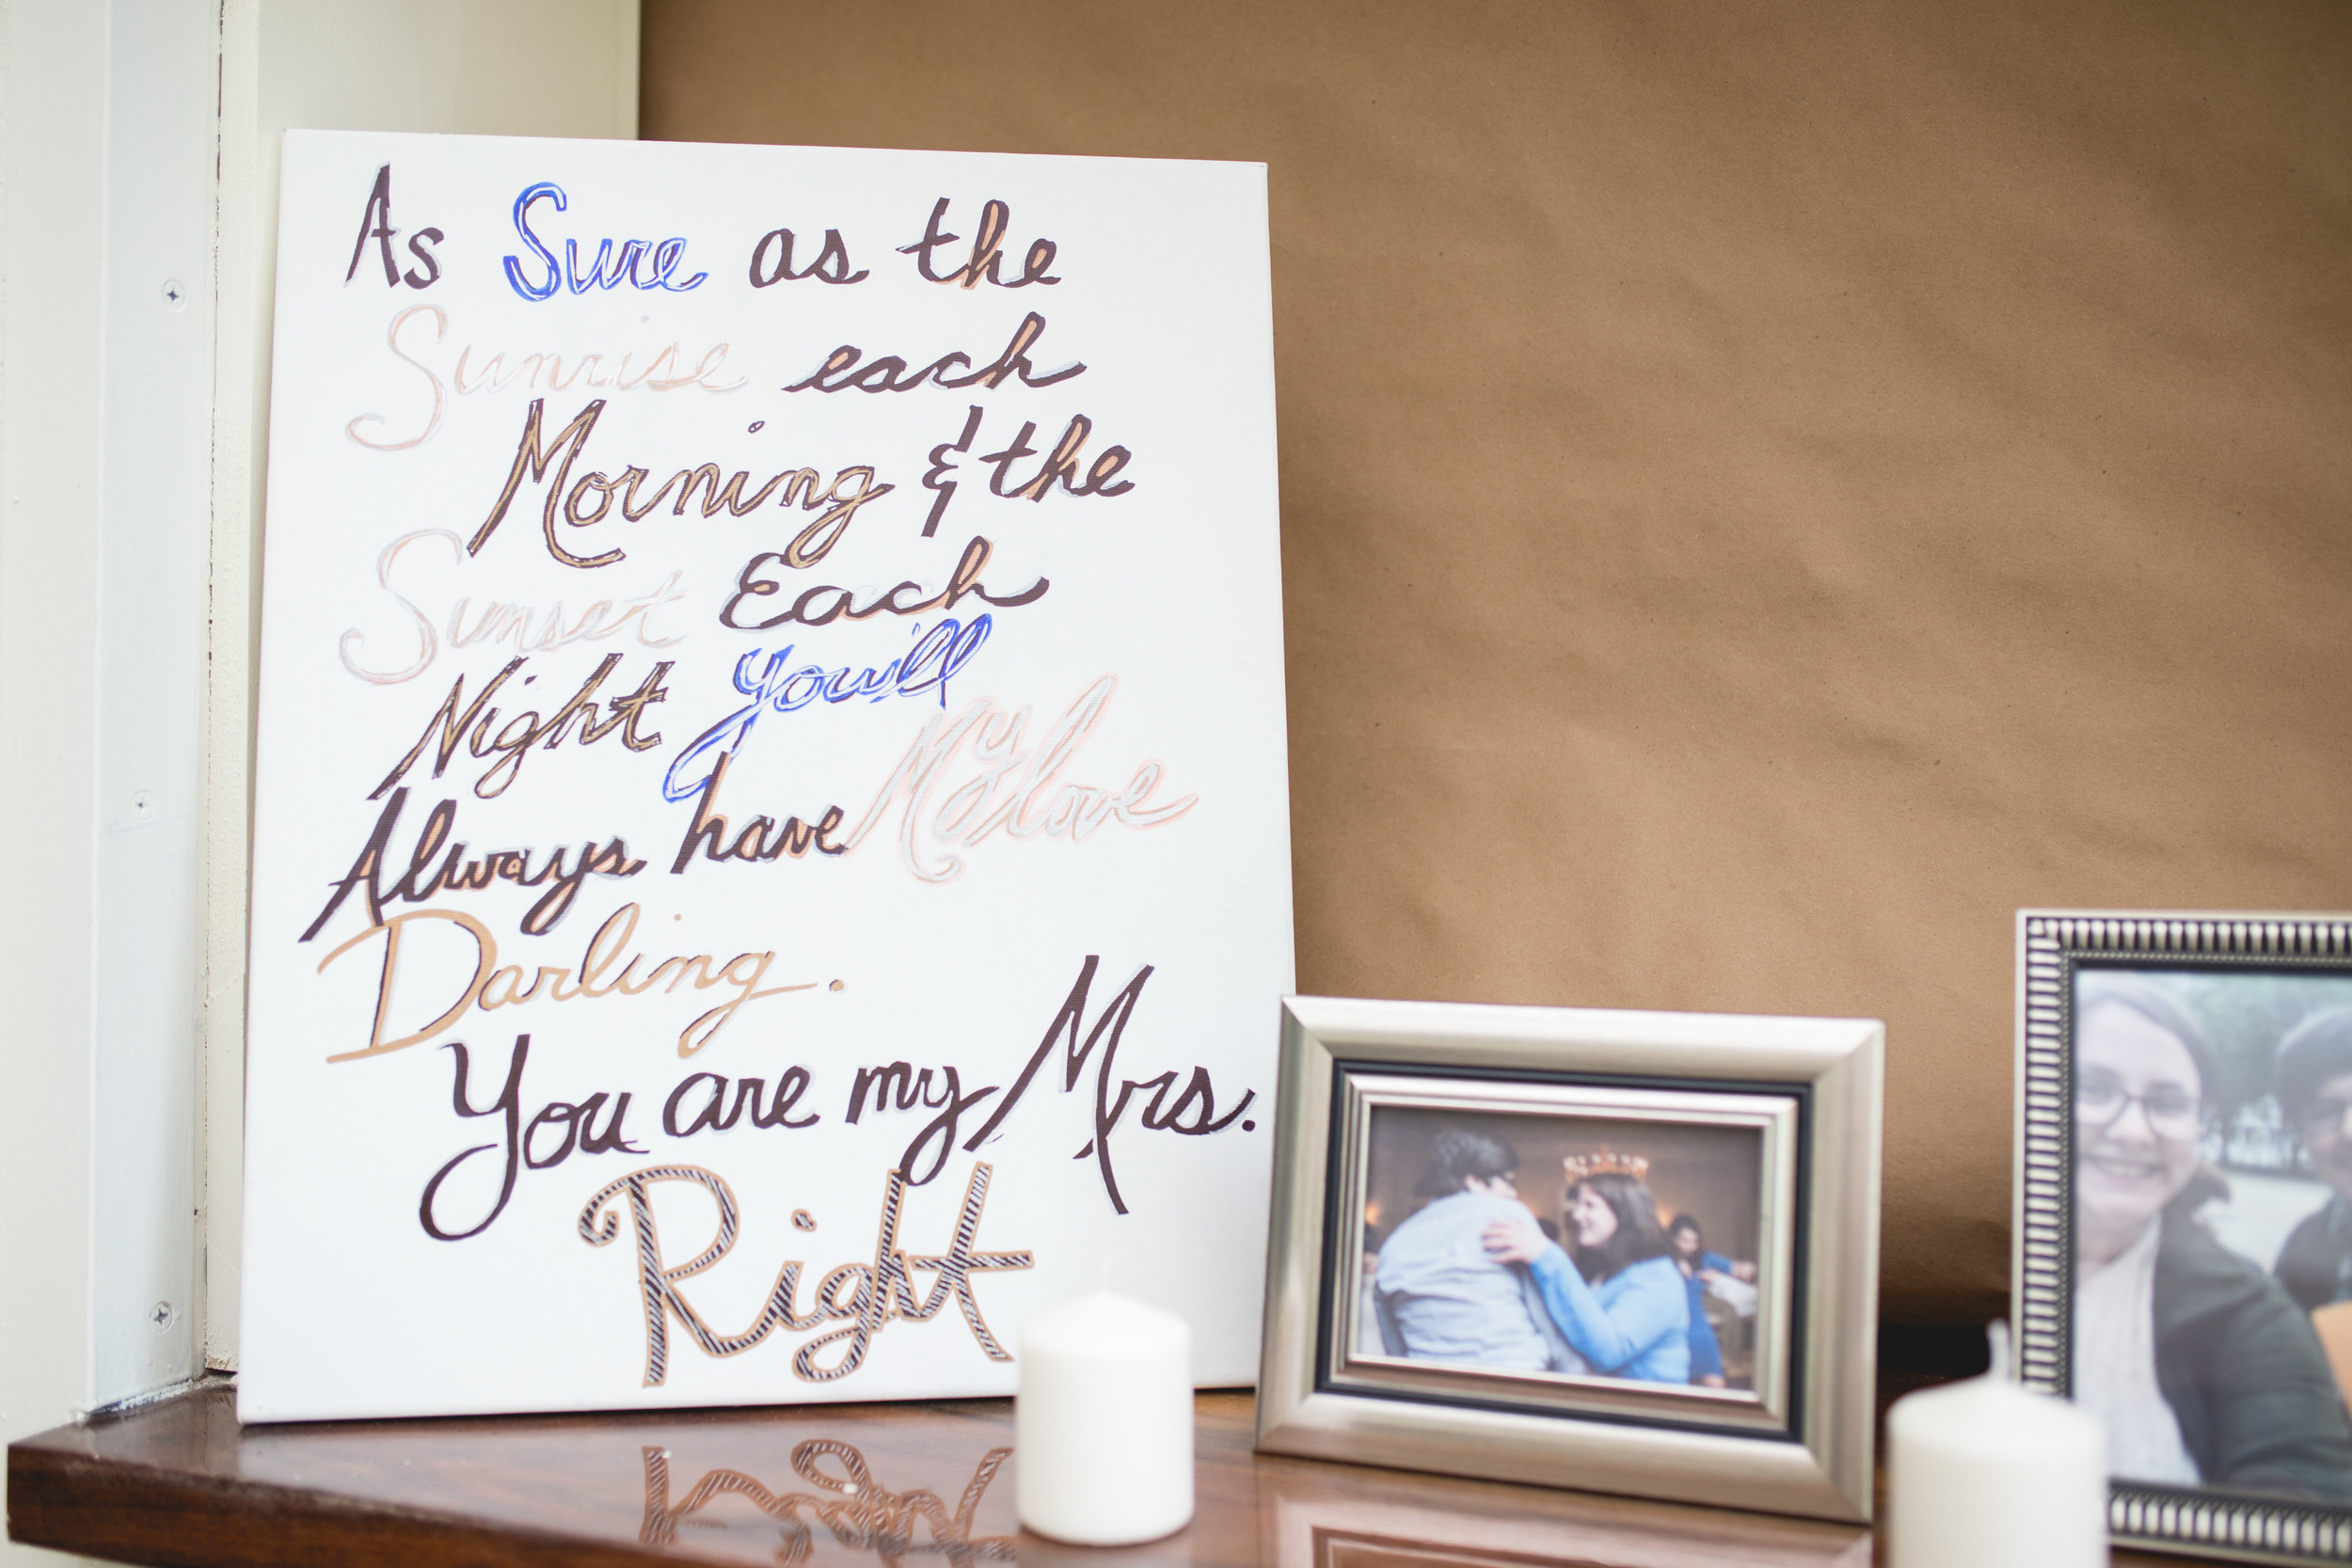 As Sure as the
Sunrise each
Morning & the
Sunset Each
Night You'll
Always have My love
Darling.
You are my Mrs.
Right